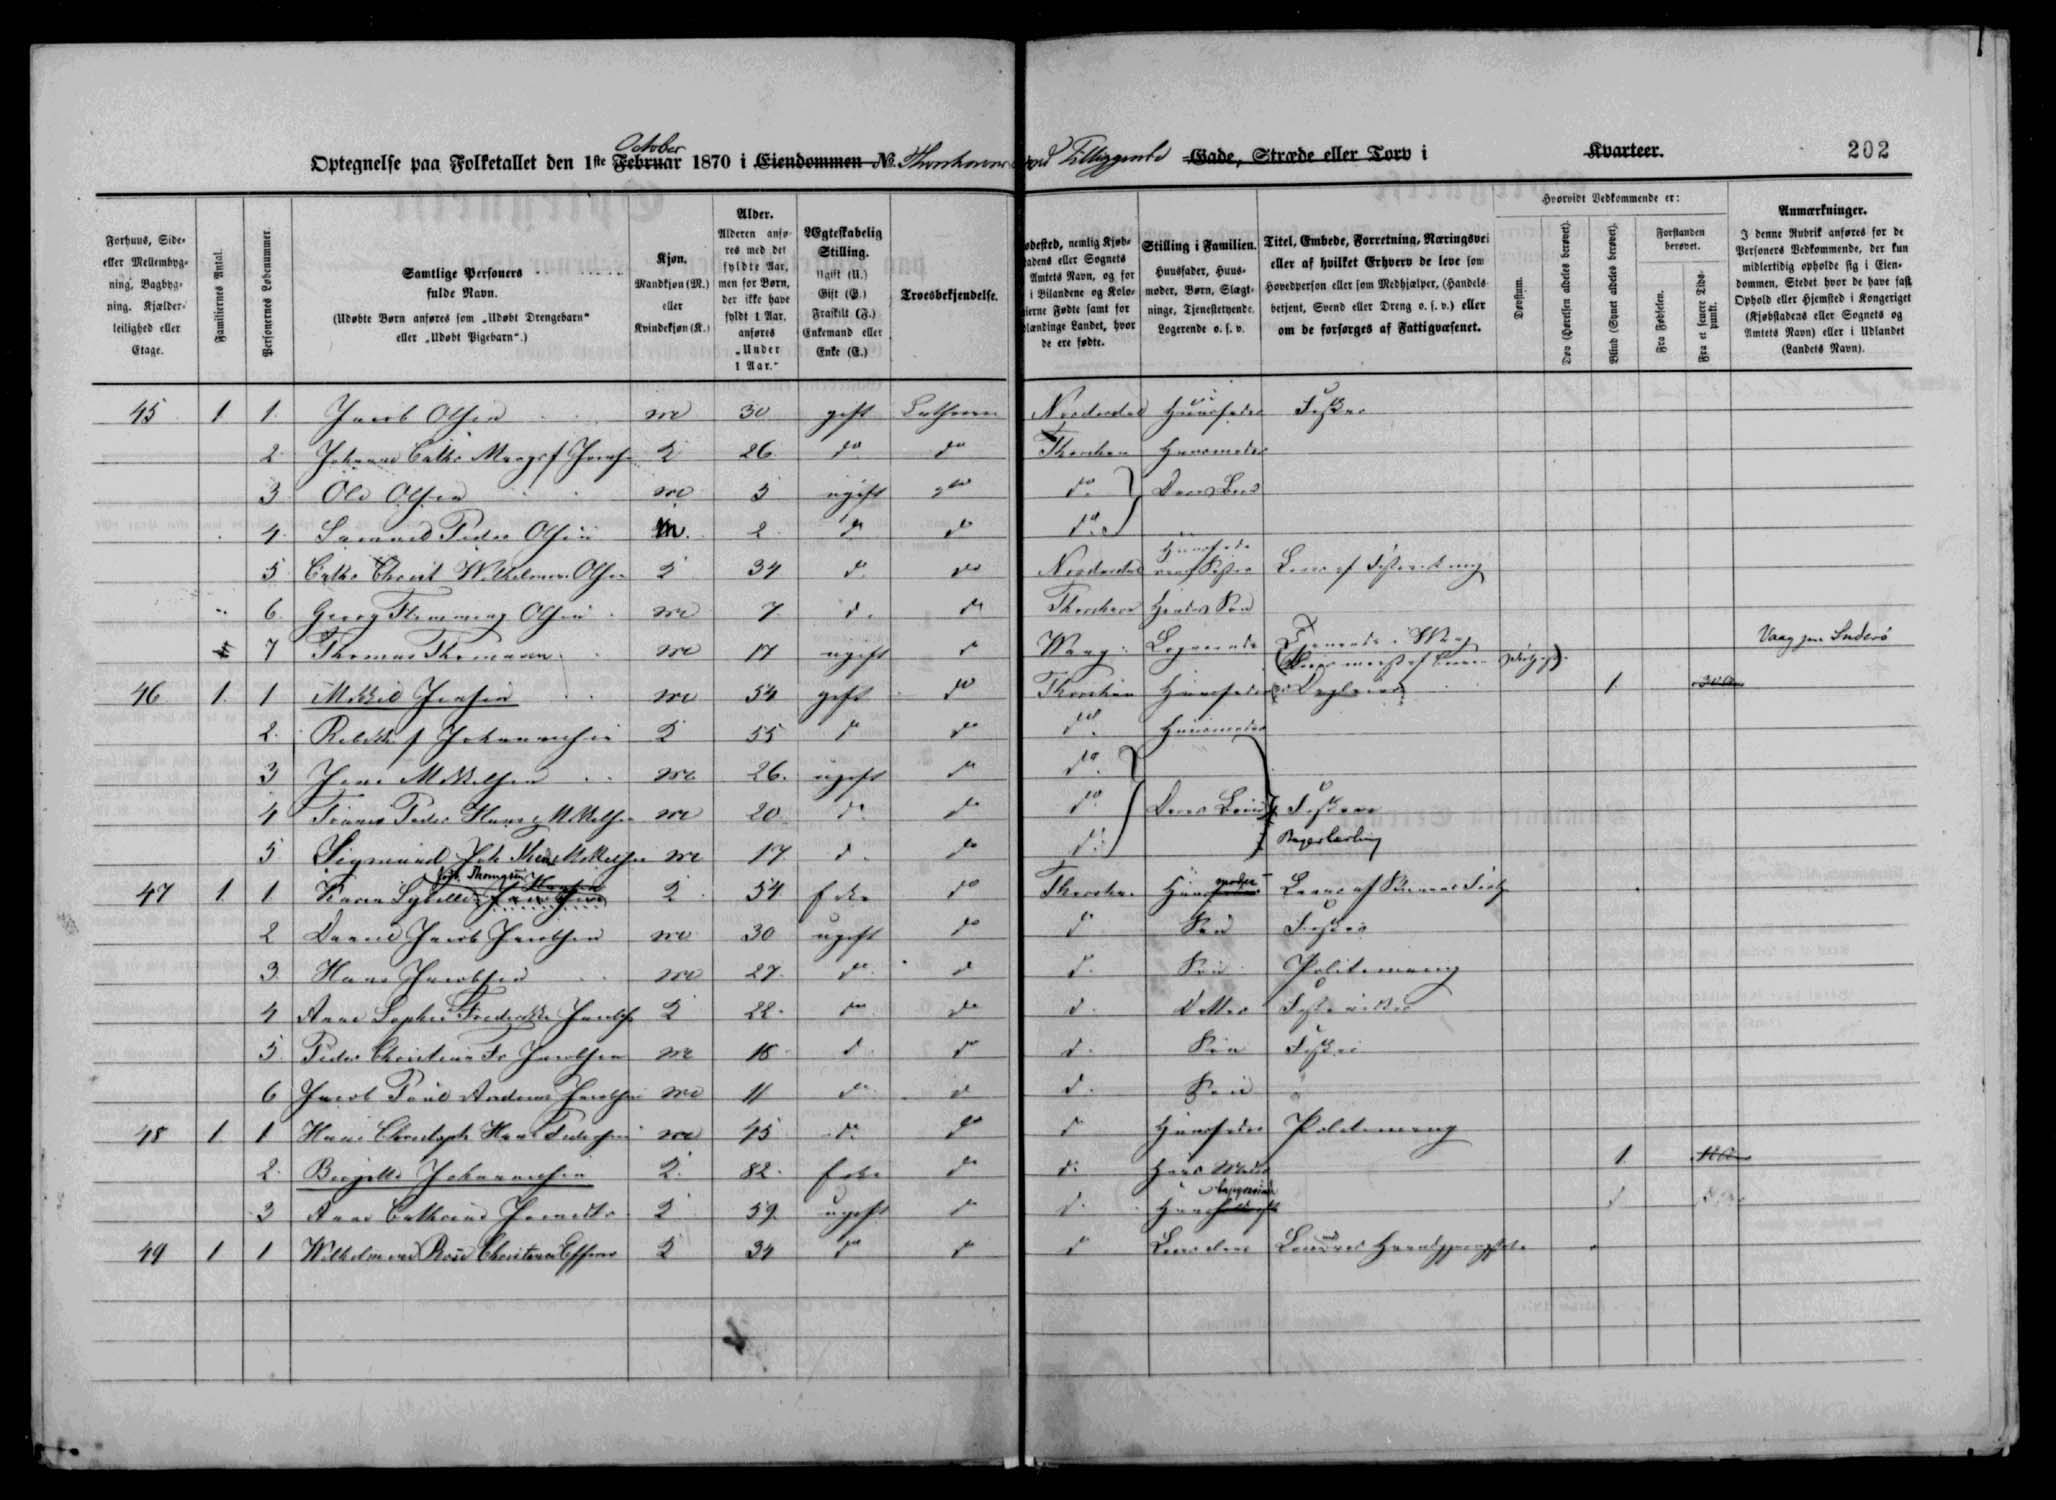 Optegnelse paa Folketallet den 1ste Februar October 1870 i Eiendommen No. Thorshavn med Tilliggende Gade, Stræde eller Torv i Kvarteer.
202
Forhuus, Side- eller Mellembyg- ning, Bagbyg- ning. Kjælder- leilighed eller Etage.
Familiernes Antal.
Personernes Løbenummer.
Samtlige Personers fulde Navn.
(Udøbte Børn anføres som „Udøbt Drengebarn“ eller „Udøbt Pigebarn“.)
Kjøn.
Mandkjøn (M.) eller Kvindekjøn (K.)
Alder.
Alderen anfø- res med det fyldte Aar, men for Børn, der ikke have fyldt 1 Aar, anføres „Under 1 Aar.“
Ægteskabelig Stilling.
Ugift (U.) Gift (G.) Fraskilt (F.) Enkemand eller Enke (E.)
Troesbekjendelse.
ødested, nemlig Kjøb- adens eller Sognets Amtets Navn, og for i Bilandene og Kolo- ierne Fødte samt for dlændinge Landet, hvor de ere fødte.
Stilling i Familien.
Huusfader, Huus- moder, Børn, Slægt- ninge, Tjenestetyende, Logerende o. s. v.
Titel, Embede, Forretning, Næringsvei eller af hvilket Erhverv de leve som Hovedperson eller som Medhjælper, (Handels- betjent, Svend eller Dreng o. s. v.) eller om de forsørges af Fattigvæsenet.
Hvorvidt Vedkommende er:
Døvstum.
Døv (Hørelsen aldeles berøvet).
Blind (Synet aldeles berøvet).
Forstanden berøvet.
Fra Fødselen.
Fra et senere Tids- punkt.
Anmærkninger.
I denne Rubrik anføres for de Personers Vedkommende, der kun midlertidig opholde sig i Eien- dommen, Stedet hvor de have fast Ophold eller Hjemsted i Kongeriget (Kjøbstadens eller Sognets og Amtets Navn) eller i Udlandet (Landets Navn).
45 1 1 Jacob Olsen m 30 gift Luthersk Norderdal Huusfader Fisker
2 Johanne Cathr. Margr. f. K 26 do do Thorshavn Huusmoder
3 Ole Olsen m 5 ugift do do Deres Børn
4 Samuel Peder Olsen m. 2 do do do
5 Cathr. Christ. Wilhelmine Olsen K 34 do do Norderdal Huusfaderens Søster Lever af
6 Georg Flemming Olsen m 7 do do Thorshavn Hendes Søn
7 Thomas Thomasen m 17 ugift do Waag Logerende Vaag paa Suderø
46 1 1 Mikkel Jensen m 54 gift do Thorshavn Huusfader Dagleier 1
2 Rebekka f. Johannesen K 55 do do do Huusmoder
3 Jens Mikkelsen m 26 ugift do do
4 Frants Peder Hans Mikkelsen m 20 do do do Deres Børn Fisker
5 Sigmund Joh. Mikkelsen m 17 do do do Bagerlærling
47 1 1 Karen Sybille Jacobsen f. Hansen K 54 Enke do Thorshavn Huusmoder Lever af Sønnens
2 Daniel Jacob Jacobsen m 30 ugift do do Søn Fisker
3 Hans Jacobsen m 27 do do do Søn Politimand
4 Anne Sophie Fredrikke Jacobsen K 22 do do do Datter
5 Peder Christian Fr. Jacobsen m 18 do do do Søn Fisker
6 Jacob Poul Andreas Jacobsen m 11 do do do Søn
48 1 1 Hans Christoph Hans Pedersen m 45 do do do Huusfader Politimand
2 Birgitte Johannesen K 82 Enke do do Hans Moder 1
3 Anne Cathrine K 59 ugift do do
49 1 1 Wilhelmine Rose Christine K 34 do do do